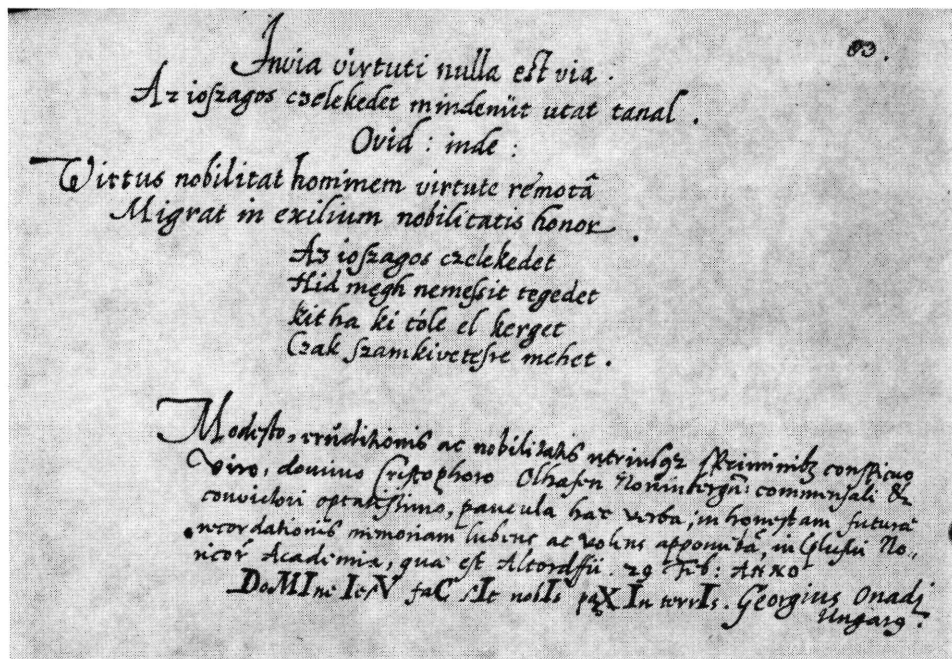 83.
Invia virtuti nulla est via.
Az ioſzagos czelekedet mindenüt utat tanal.
Ovid: inde:
Virtus nobilitat hominem virtute remotâ
Migrat in exilium nobilitatis honor.
Az ioſzagos czelekedet
Hid megh nemeſsit tegedet
kit ha ki tóle el kerget
Czak ſzamkiveteſre mehet.
Modeſto, eruditionis ac nobilitatis utriuſqz conſpicuo
Viro, domino Criſtophoro Olhafen commenſali &
convictori optatiſſimo, paucula hac verba, in honeſtam, futuræ
recordationis memoriam lubens ac volens apponebā, in No-
ricor Academia, quæ eſt Altorffii. 29 Feb: ANNO
DoMIne IeſV faC ſIt nobIs paX In terrIs. Georgius Onadi
Ungarg.